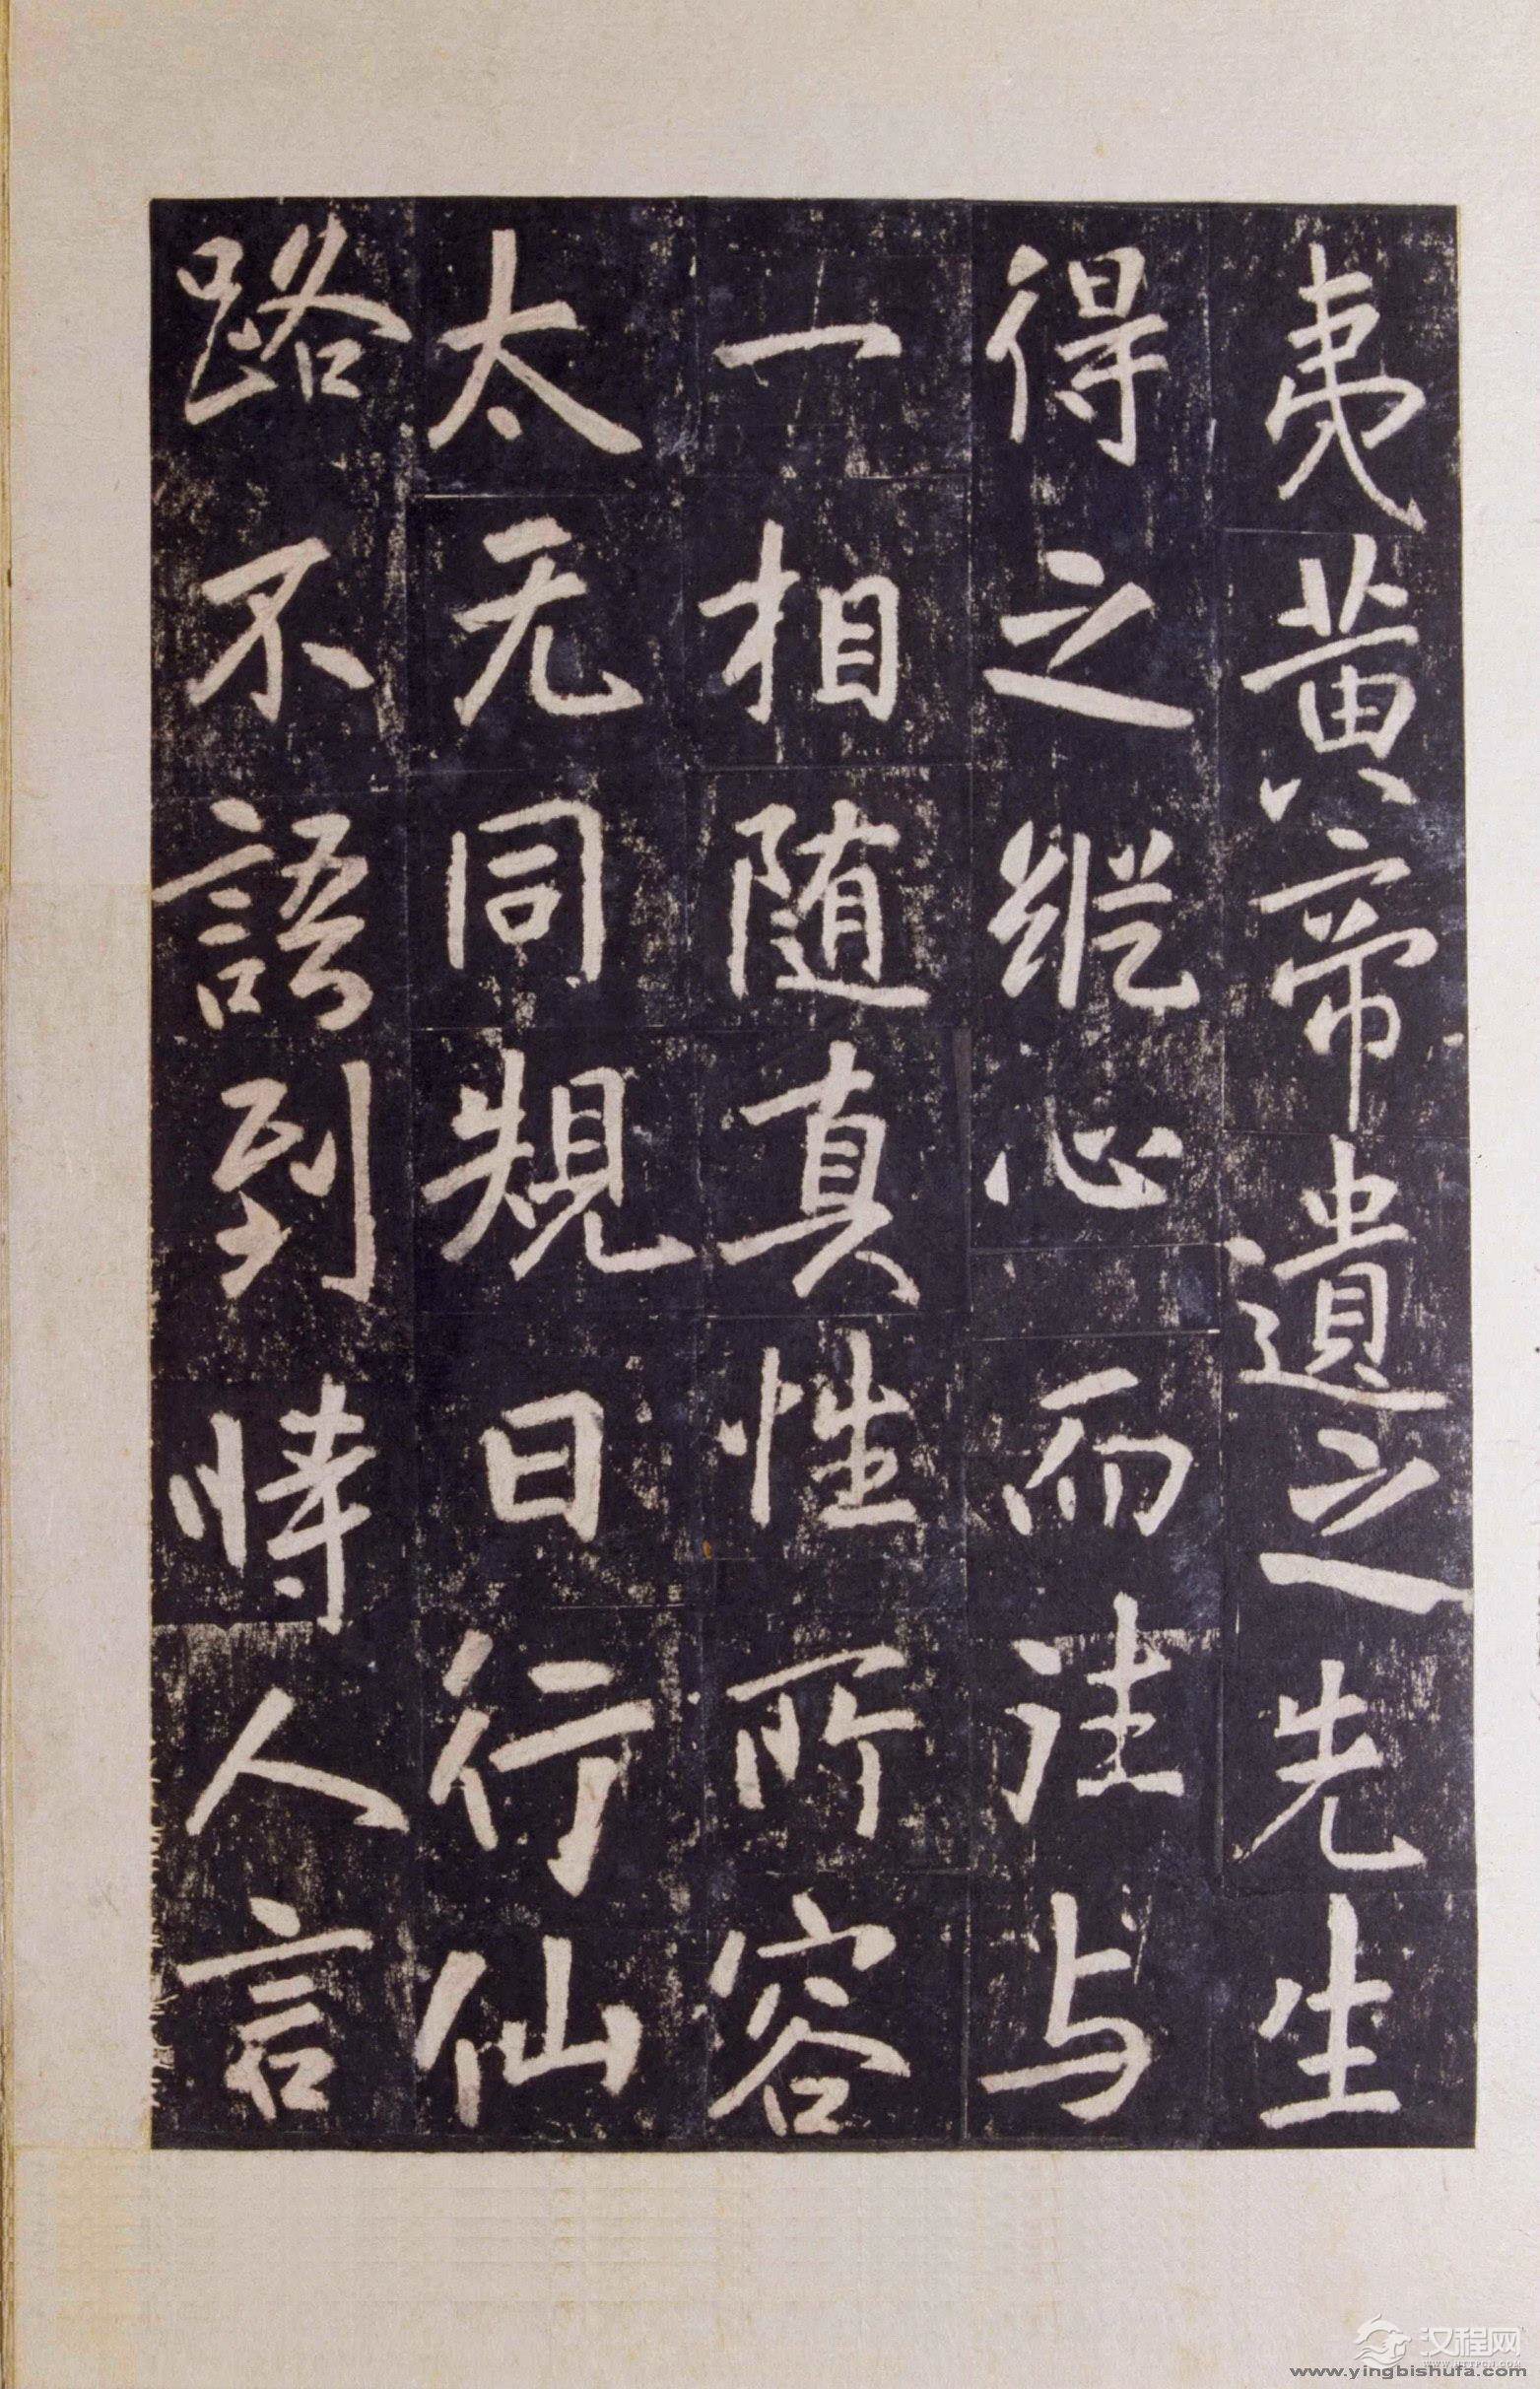 夷黄帝遺之先生
得之縱心而往与
一相随真性所容
太无同規日行仙
路不語到時人言
汉程网
WWW.HTTPCN.COM
www.yingbishufa.com